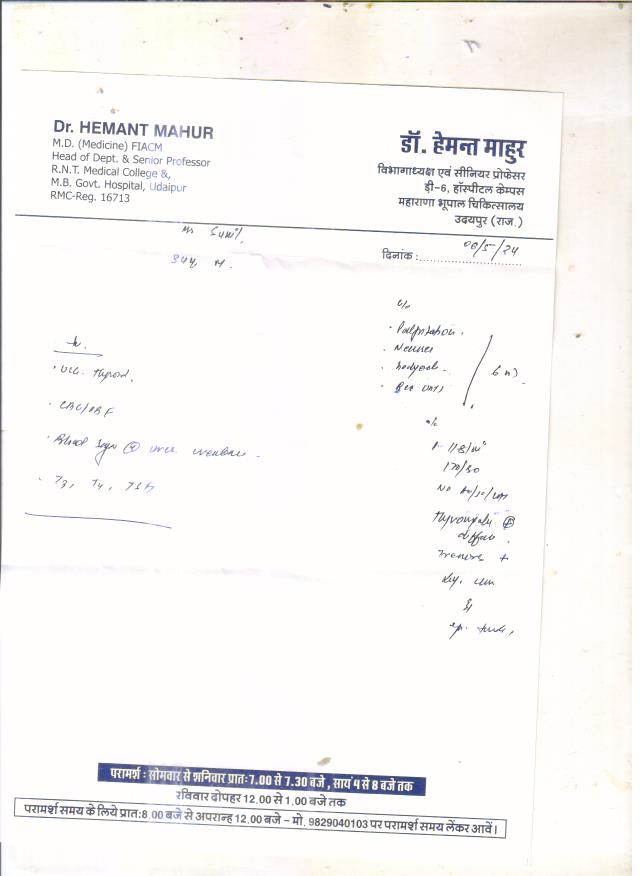 Dr. HEMANT MAHUR
M.D. (Medicine) FIACM
Head of Dept. & Senior Professor
R.N.T. Medical College &,
M.B. Govt. Hospital, Udaipur
RMC-Reg. 16713
डॉ. हेमन्त माहुर
विभागाध्यक्ष एवं सीनियर प्रोफेसर
डी-6, हॉस्पीटल केम्पस
महाराणा भूपाल चिकित्सालय
उदयपुर (राज.)
Mr Sunil,
34y M.
दिनांक : 06/5/24
c/o
• Palpitation.
•
• bodyache
•
6 m
• thyroid.
• CBC/
• Blood Sugar
• T3, T4, TSH
o/e
P 118/m
170/90
No
diffuse.
Tremors +
परामर्श : सोमवार से शनिवार प्रातः 7.00 से 7.30 बजे , सायं 4 से 8 बजे तक
रविवार दोपहर 12.00 से 1.00 बजे तक
परामर्श समय के लिये प्रातः 8.00 बजे से अपरान्ह 12.00 बजे – मो. 9829040103 पर परामर्श समय लेंकर आवें।